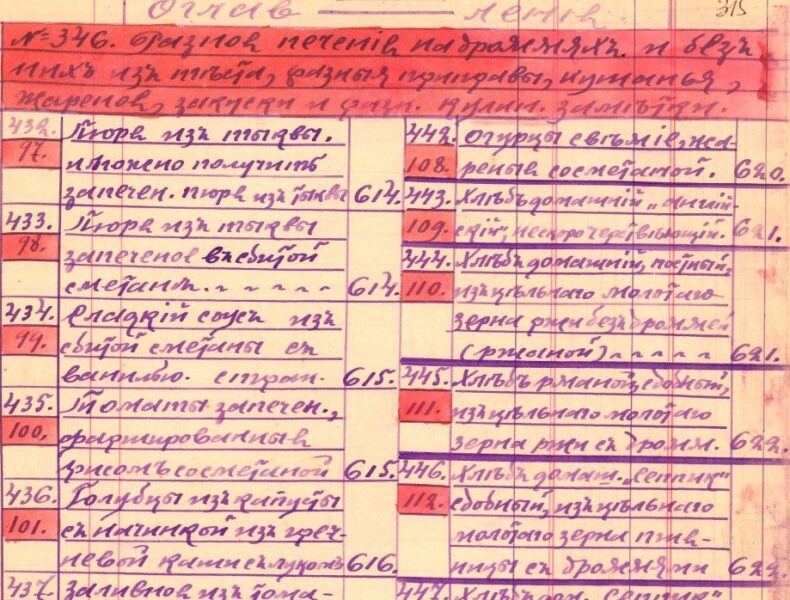 Оглав — леніе.
315
№346. Разное печеніе на дрожжяхъ и безъ
нихъ изъ тѣста, разныя приправы, кушанья,
жареное, закуски и разн. кулин. замѣтки.
432. Пюре изъ тыквы.
97. и можно получить
запечен. пюре изъ тыквы 614.
433. Пюре изъ тыквы
98. запеченое въ сбитой
сметанѣ. - - - - - 614.
434. Сладкій соусъ изъ
99. сбитой сметаны съ
ванилью. стран. 615.
435. Томаты запечен.,
100. фаршированные
рисомъ со сметаной 615.
436. Голубцы изъ капусты
101. съ начинкой изъ греч-
невой каши съ лукомъ 616.
437. Заливное изъ тома-
442. Огурцы свѣжіе, жа-
108. реные со сметаной. 620.
443. Хлѣбъ домашній „англій-
109. скій", нескоро черствѣющій. 621.
444. Хлѣбъ домашній, постный,
110. изъ цѣльнаго молотаго
зерна ржи безъ дрожжей
(ржаной) - - - - - 621.
445. Хлѣбъ ржаной, сдобный,
111. изъ цѣльнаго молотаго
зерна ржи съ дрожж. 622.
446. Хлѣбъ домаш. „Сеппик"
112. сдобный, изъ цѣльнаго
молотаго зерна пше-
ницы съ дрожжями 622.
447. Хлѣбъ дом. „Сеппик"